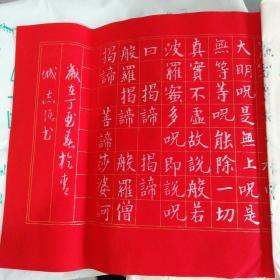 大明呪是無上呪是
無等等呪能除一切
真實不虛故說般若
波羅蜜多呪即說呪
曰揭諦揭諦
般羅揭諦般羅僧
揭諦菩諦莎婆訶
歲在丁
城志